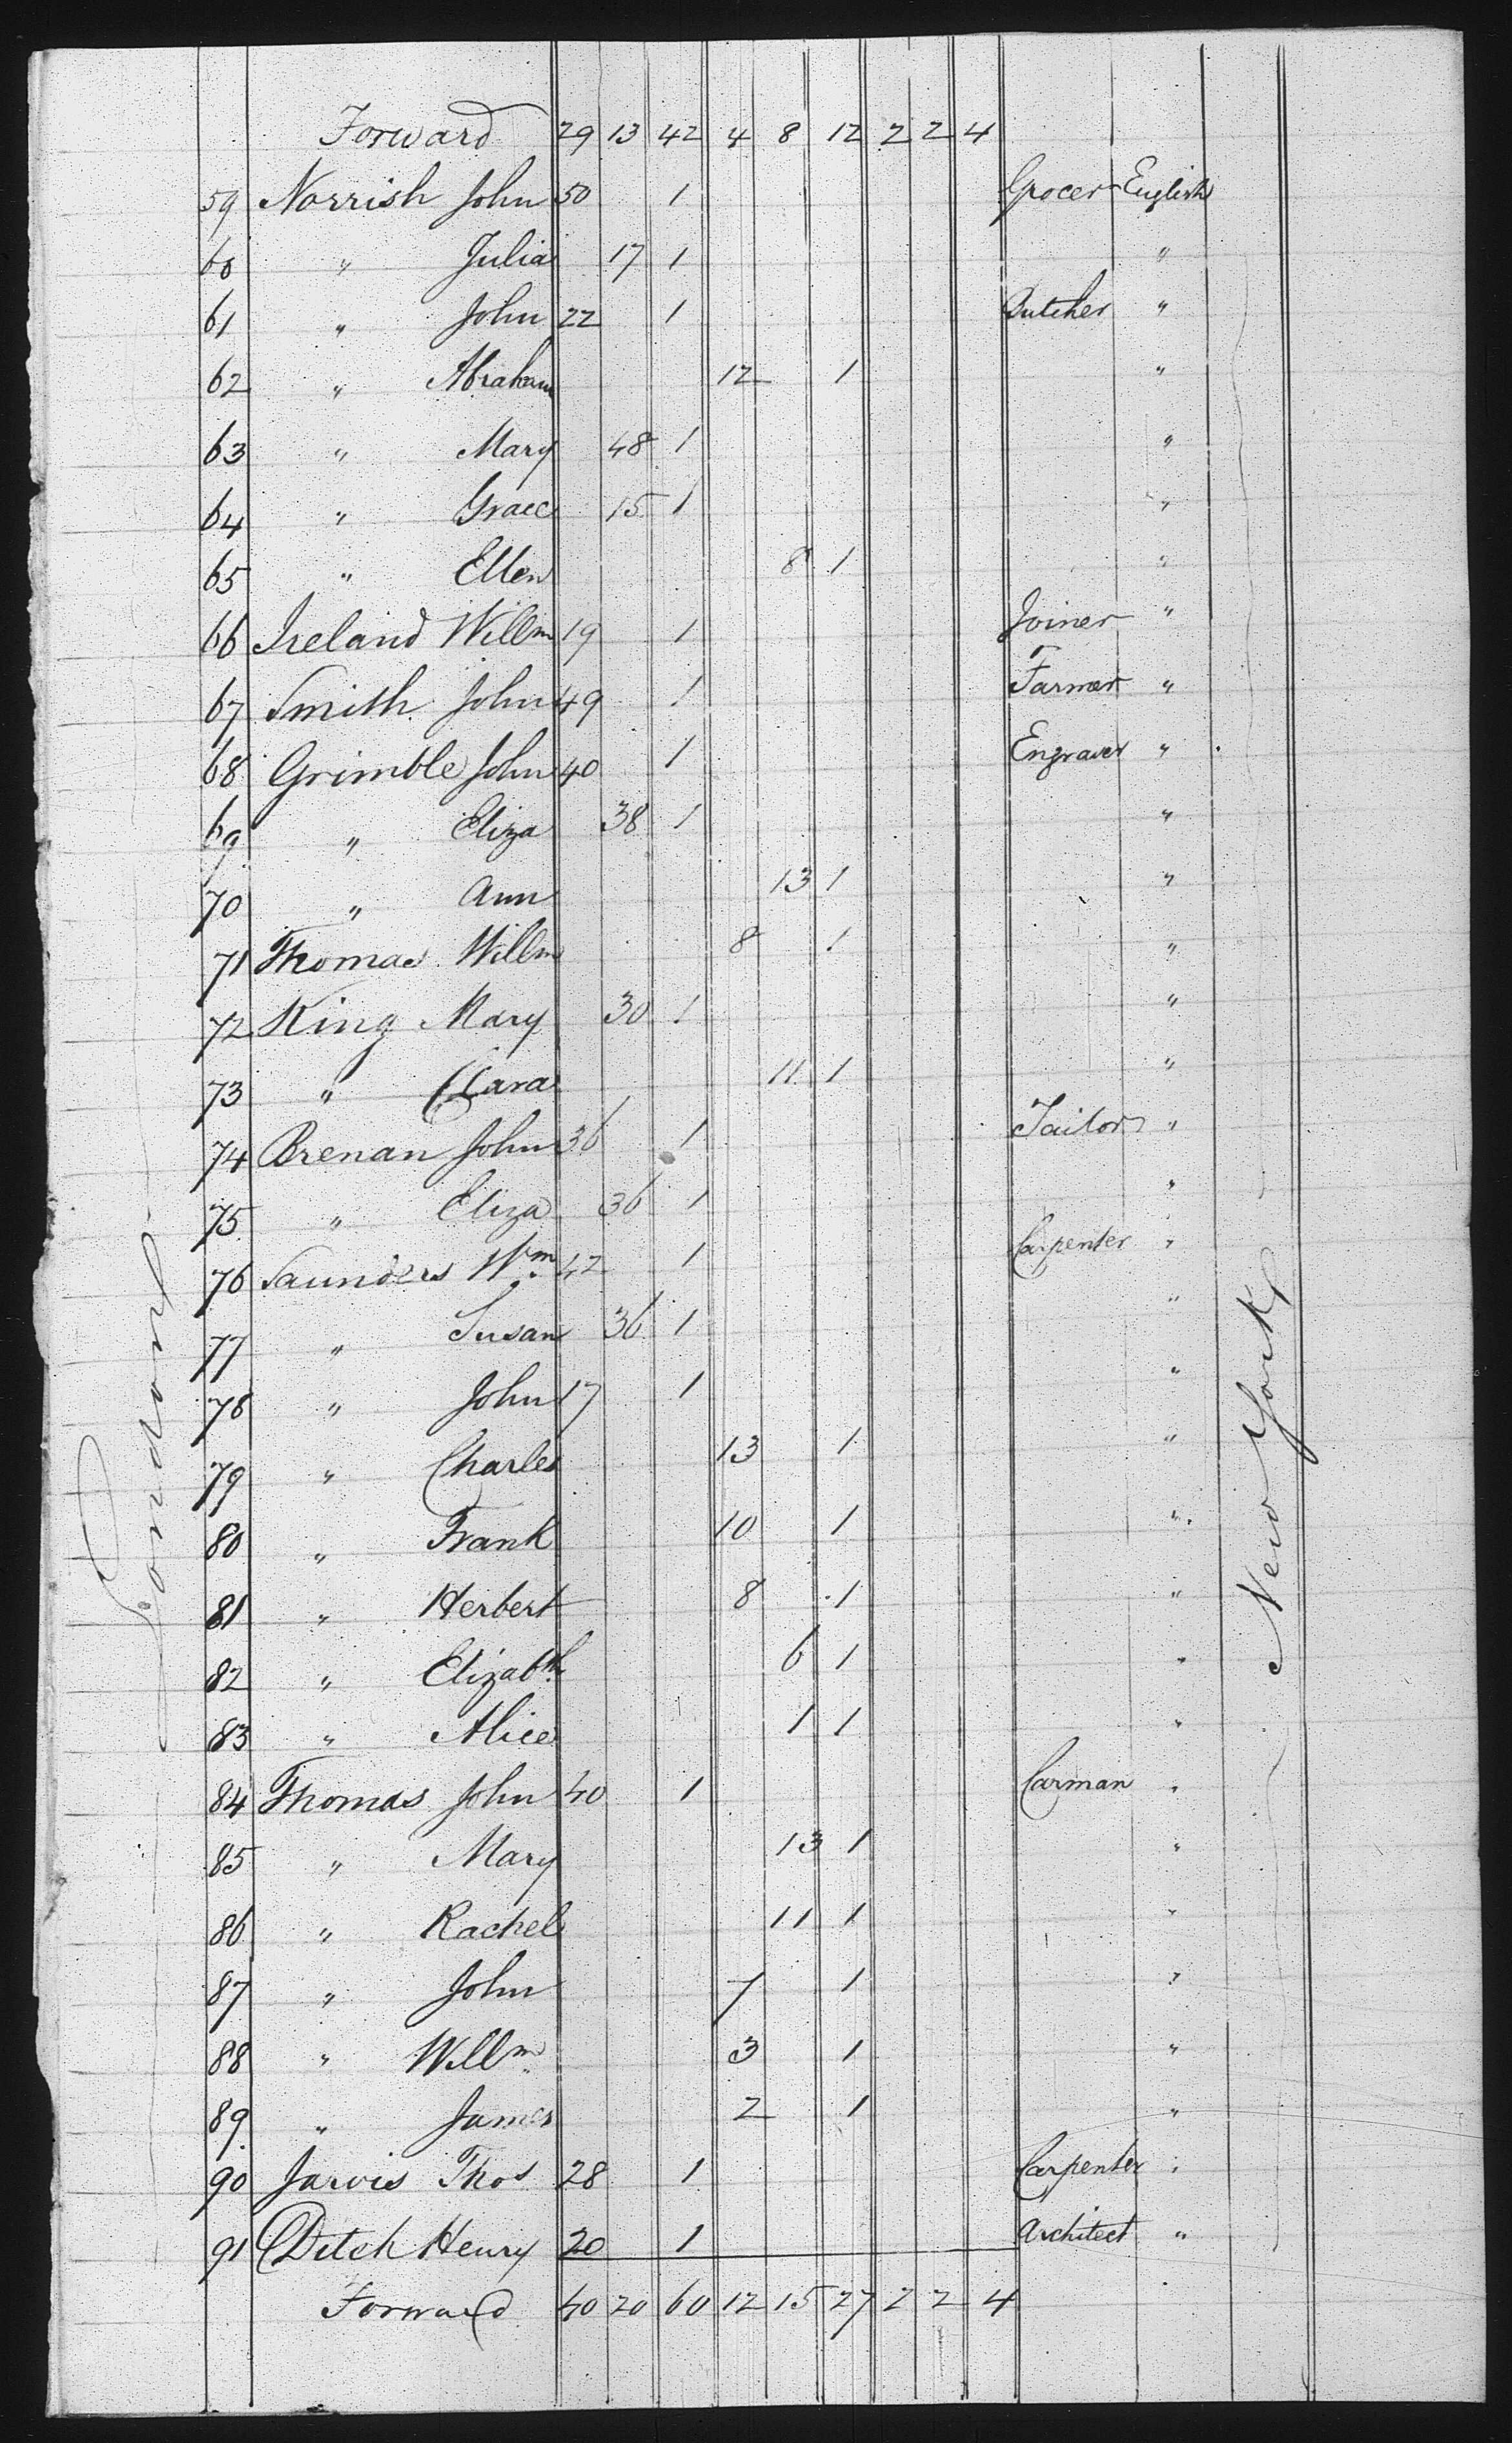 Forward 29 13 42 4 8 12 2 2 4
59 Norrish John 50 1 Grocer English
60 " Julia 17 1 "
61 " John 22 1 Butcher "
62 " Abraham 12 1 "
63 " Mary 48 1 "
64 " Grace 15 1 "
65 " Ellen 8 1 "
66 Ireland Willm 19 1 Joiner "
67 Smith John 49 1 Farmer "
68 Grimble John 40 1 Engraver "
69 " Eliza 38 1 "
70 " Ann 13 1 "
71 Thomas Willm 8 1 "
72 King Mary 30 1 "
73 " Clara 11 1 "
74 Brenan John 36 1 Tailor "
75 " Eliza 36 1 "
76 Saunders Wm 42 1 Carpenter "
77 " Susan 36 1 "
78 " John 17 1 "
79 " Charles 13 1 "
80 " Frank 10 1 "
81 " Herbert 8 1 "
82 " Elizabth 6 1 "
83 " Alice 1 1 "
84 Thomas John 40 1 Carman "
85 " Mary 13 1 "
86 " Rachel 11 1 "
87 " John 7 1 "
88 " Willm 3 1 "
89 " James 2 1 "
90 Jarvis Thos 28 1 Carpenter "
91 Ditch Henry 20 1 Architect "
Forward 40 20 60 12 15 27 2 2 4
London
New York